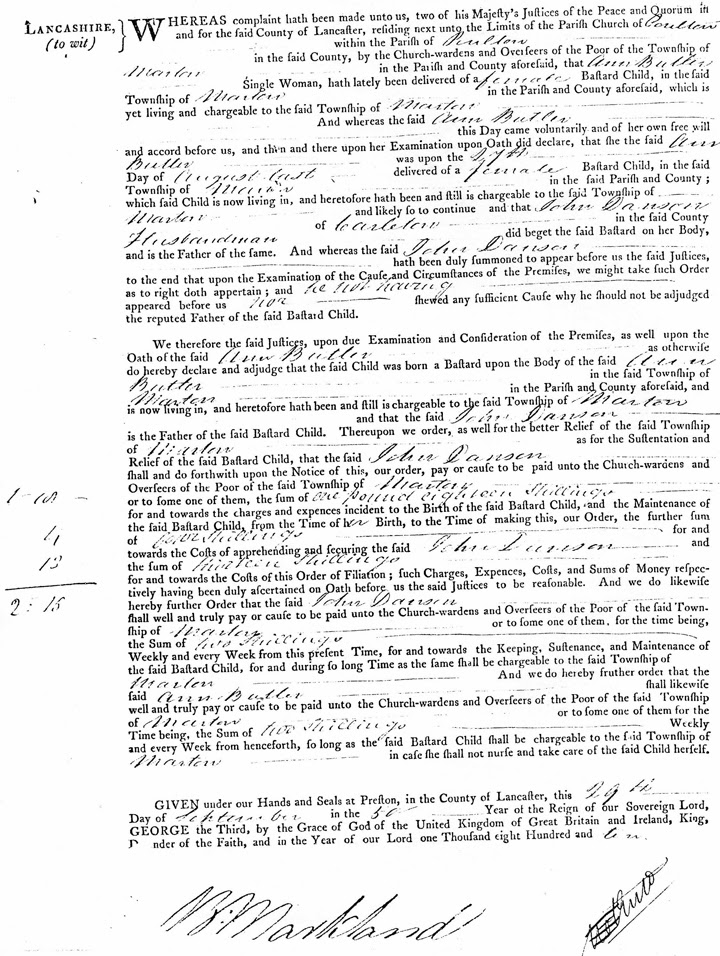 LANCASHIRE, (to wit) } WHEREAS complaint hath been made unto us, two of his Majesty's Justices of the Peace and Quorum in
and for the said County of Lancaster, residing next unto the Limits of the Parish Church of Poulton
within the Parish of Poulton
in the said County, by the Church-wardens and Overseers of the Poor of the Township of
Marton in the Parish and County aforesaid, that Ann Butler
Single Woman, hath lately been delivered of a female Bastard Child, in the said
Township of Marton in the Parish and County aforesaid, which is
yet living and chargeable to the said Township of Marton
And whereas the said Ann Butler
this Day came voluntarily and of her own free will
and accord before us, and then and there upon her Examination upon Oath did declare, that she the said Ann
Butler was upon the 27th
Day of August last delivered of a female Bastard Child, in the said
Township of Marton in the said Parish and County;
which said Child is now living in, and heretofore hath been and still is chargeable to the said Township of
Marton and likely so to continue and that John Danson
of Carleton in the said County
Husbandman did beget the said Bastard on her Body,
and is the Father of the same. And whereas the said John Danson
hath been duly summoned to appear before us the said Justices,
to the end that upon the Examination of the Cause and Circumstances of the Premises, we might take such Order
as to right doth appertain; and he not having
appeared before us nor shewed any sufficient Cause why he should not be adjudged
the reputed Father of the said Bastard Child.
We therefore the said Justices, upon due Examination and Consideration of the Premises, as well upon the
Oath of the said Ann Butler as otherwise
do hereby declare and adjudge that the said Child was born a Bastard upon the Body of the said Ann
Butler in the said Township of
Marton in the Parish and County aforesaid, and
is now living in, and heretofore hath been and still is chargeable to the said Township of Marton
and that the said John Danson
is the Father of the said Bastard Child. Thereupon we order, as well for the better Relief of the said Township
of Marton as for the Sustentation and
Relief of the said Bastard Child, that the said John Danson
shall and do forthwith upon the Notice of this, our order, pay or cause to be paid unto the Church-wardens and
Overseers of the Poor of the said Township of Marton
or to some one of them, the sum of one pound eighteen Shillings
for and towards the charges and expences incident to the Birth of the said Bastard Child, and the Maintenance of
1 - 18 -
the said Bastard Child, from the Time of her Birth, to the Time of making this, our Order, the further sum
of four Shillings for and
4
towards the Costs of apprehending and securing the said John Danson and
the sum of thirteen Shillings
13
for and towards the Costs of this Order of Filiation; such Charges, Expences, Costs, and Sums of Money respec-
tively having been duly ascertained on Oath before us the said Justices to be reasonable. And we do likewise
2 : 15
hereby further Order that the said John Danson
shall well and truly pay or cause to be paid unto the Church-wardens and Overseers of the Poor of the said Town-
ship of Marton or to some one of them, for the time being,
the Sum of two Shillings
Weekly and every Week from this present Time, for and towards the Keeping, Sustenance, and Maintenance of
the said Bastard Child, for and during so long Time as the same shall be chargeable to the said Township of
Marton And we do hereby fruther order that the
said Ann Butler shall likewise
well and truly pay or cause to be paid unto the Church-wardens and Overseers of the Poor of the said Township
of Marton or to some one of them for the
Time being, the Sum of two Shillings Weekly
and every Week from henceforth, so long as the said Bastard Child shall be chargeable to the said Township of
Marton in case she shall not nurse and take care of the said Child herself.
GIVEN under our Hands and Seals at Preston, in the County of Lancaster, this 29th
Day of September in the 50 Year of the Reign of our Sovereign Lord,
GEORGE the Third, by the Grace of God of the United Kingdom of Great Britain and Ireland, King,
D nder of the Faith, and in the Year of our Lord one Thousand eight Hundred and ten
B: Markland